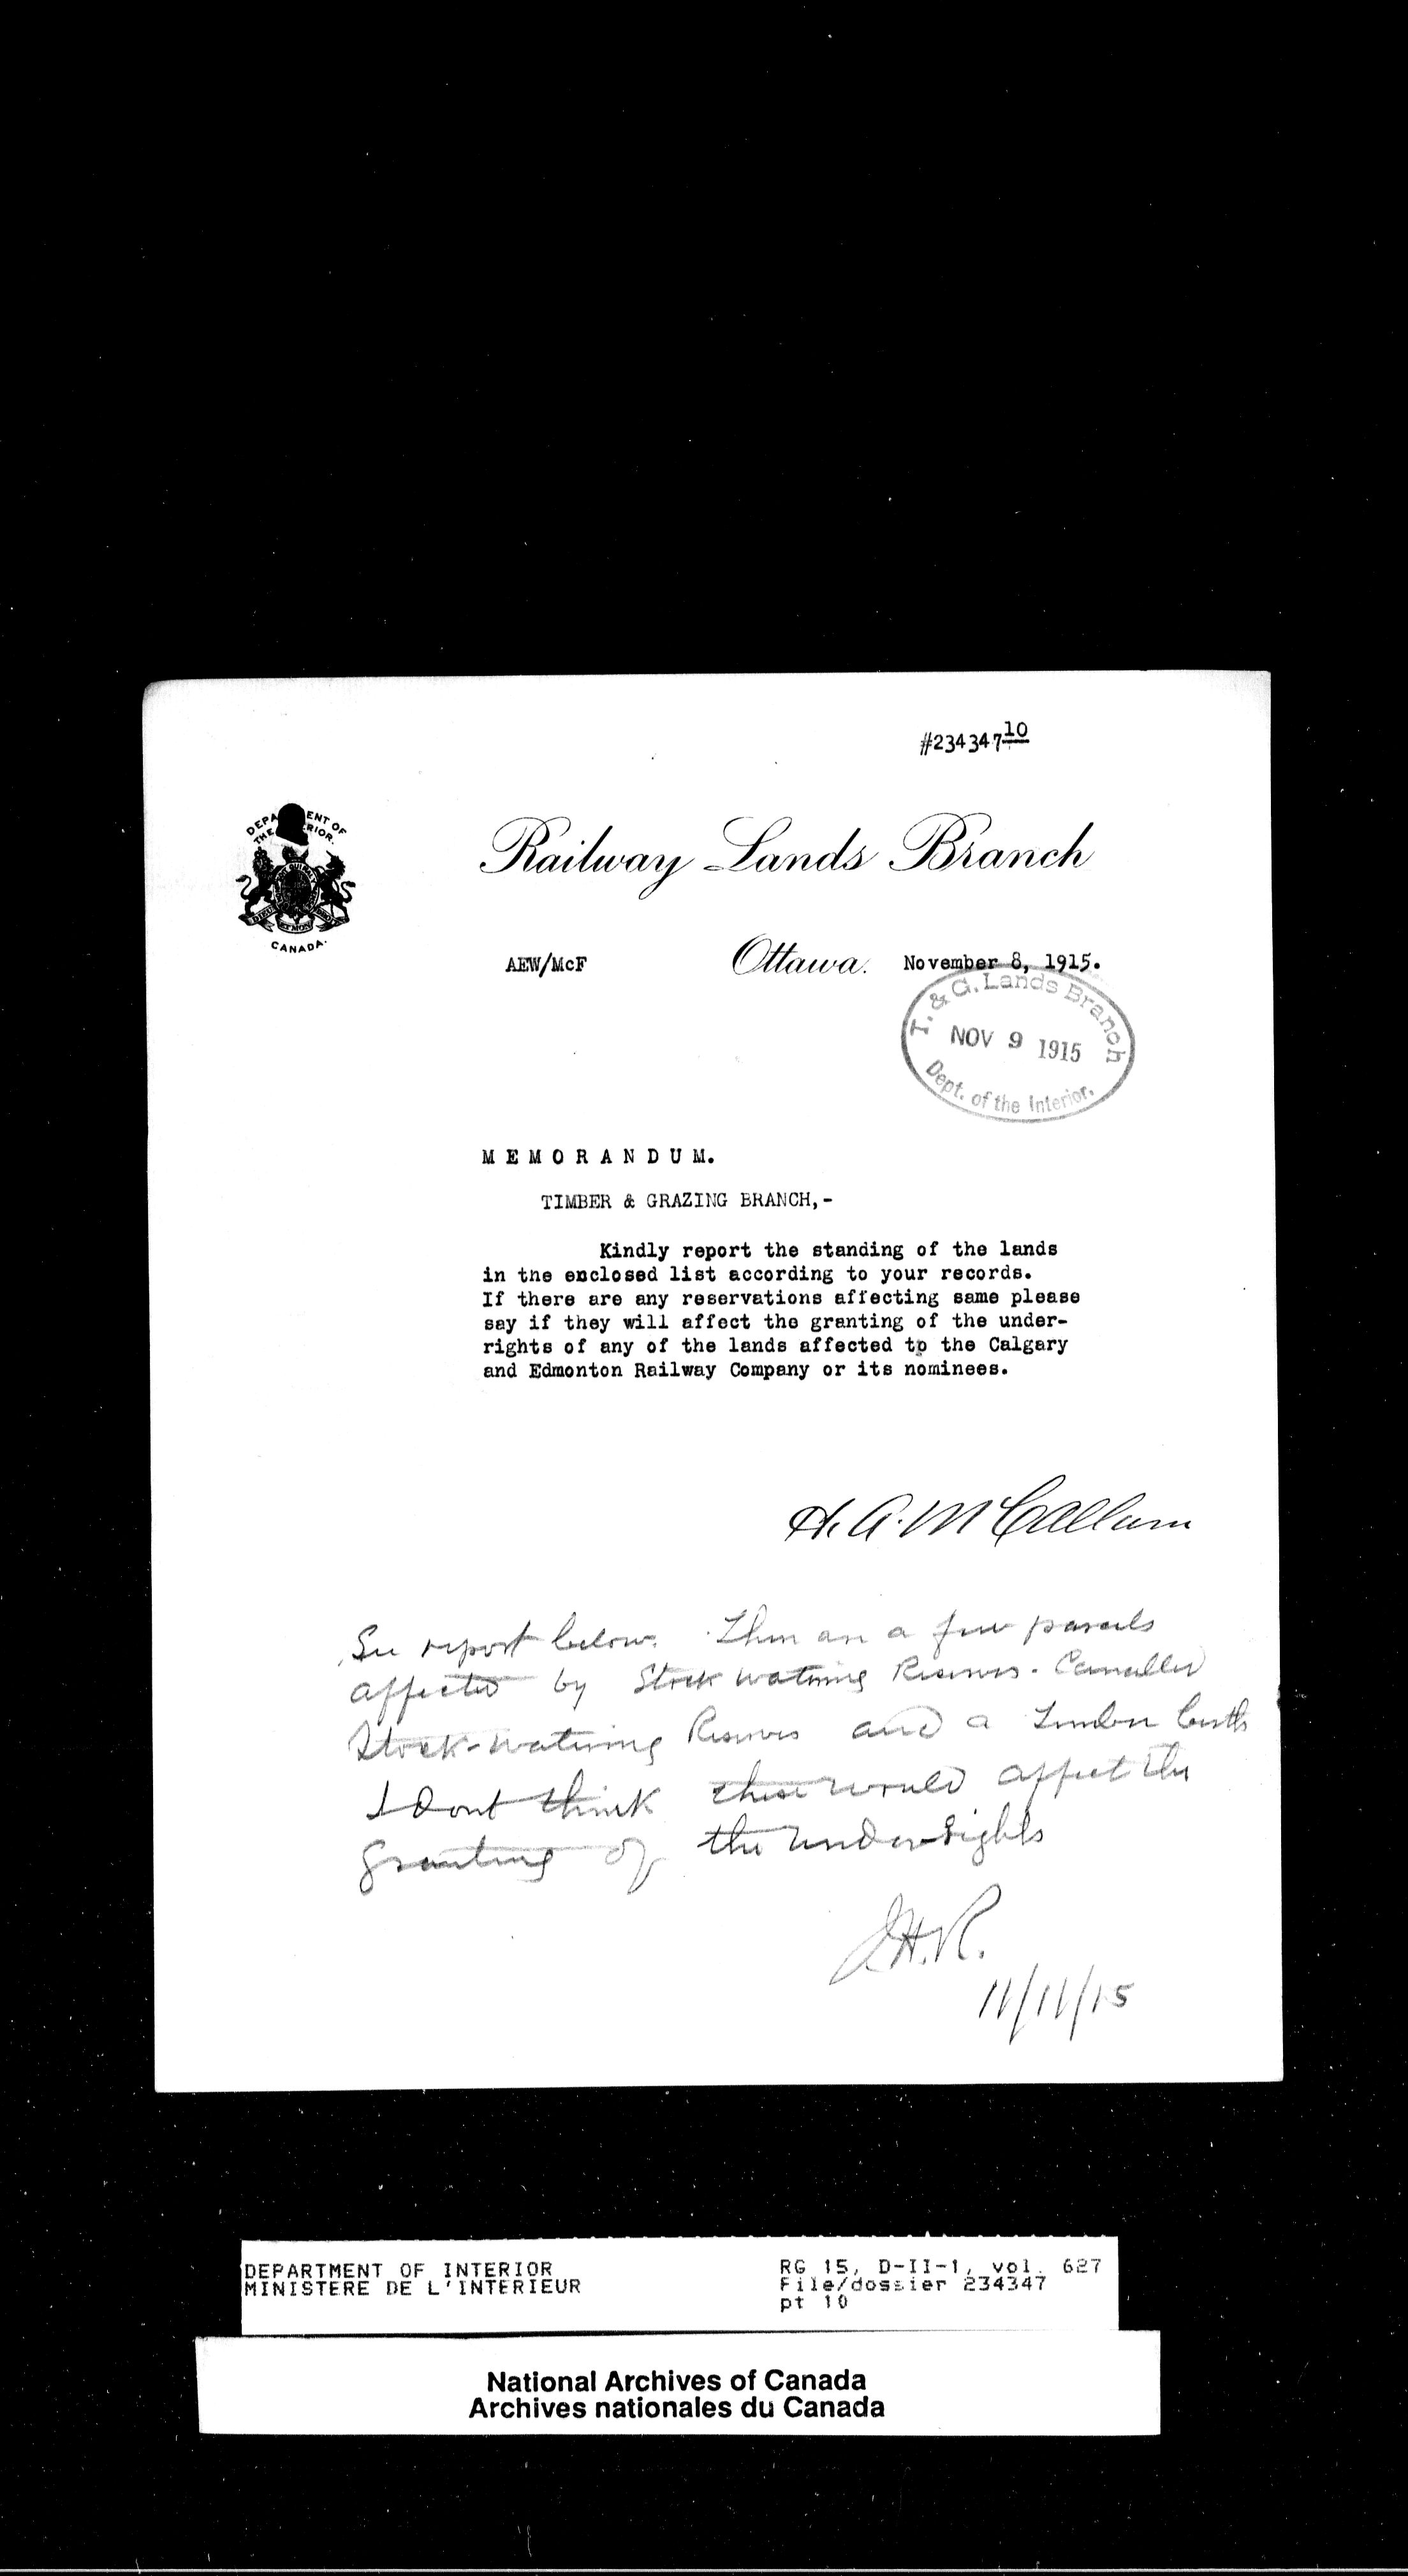 #234347 10
DEPARTMENT OF
THE INTERIOR.
CANADA.
Railway Lands Branch
AEW/McF Ottawa. November 8, 1915.
T. & G. Lands Branch
NOV 9 1915
Dept. of the Interior.
MEMORANDUM.
TIMBER & GRAZING BRANCH,-
Kindly report the standing of the lands
in the enclosed list according to your records.
If there are any reservations affecting same please
say if they will affect the granting of the under-
rights of any of the lands affected to the Calgary
and Edmonton Railway Company or its nominees.
H. A. McCallum
See report below. There are a few parcels
affected by Stock watering Reserves - Cancelled
Stock-watering Reserves and a Timber berth
I dont think these would affect the
granting of the under rights
J.H.R.
11/11/15
DEPARTMENT OF INTERIOR
MINISTERE DE L'INTERIEUR
RG 15, D-II-1, vol. 627
File/dossier 234347
pt 10
National Archives of Canada
Archives nationales du Canada